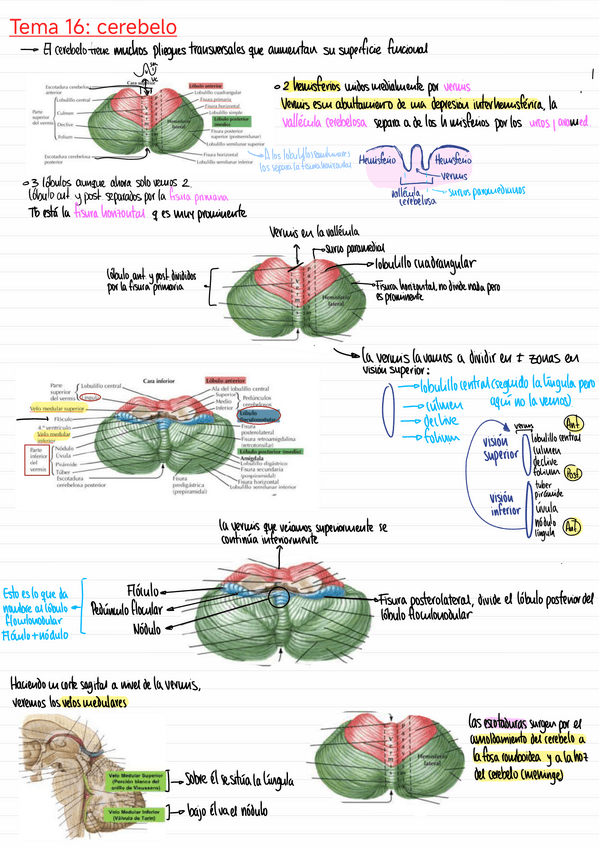 Tema 16: cerebelo
→ El cerebelo tiene muchos pliegues transversales que aumentan su superficie funcional
Cara
Escotadura cerebelosa anterior
Lobulillo central
Culmen
Declive
Folium
Parte superior del vermis
Escotadura cerebelosa posterior
Lóbulo anterior
Lobulillo cuadrangular
Fisura primaria
Fisura horizontal
Lobulillo simple
Lóbulo posterior (medio)
Fisura posterior superior (postsemilunar)
Lobulillo semilunar superior
Fisura horizontal
Lobulillo semilunar inferior
Hemisferio lateral
2 hemisferios unidos medialmente por vermis
Vermis es un abultamiento de una depresión interhemisférica, la
vallécula cerebelosa separa a de los hemisferios por los surcos paramed.
A los lobulillos semilunares
los separa la fisura horizontal
Hemisferio
Hemisferio
vermis
vallécula cerebelosa
surcos paramedianos
3 lóbulos aunque ahora solo vemos 2
lóbulo ant y post separados por la fisura primaria
Tb está la fisura horizontal q es muy prominente
Vermis en la vallécula
surco paramedial
lobulillo cuadrangular
lóbulo ant y post divididos
por la fisura primaria
Fisura horizontal, no divide nada pero
es prominente
Vermis
Hemisferio lateral
→ la vermis la vamos a dividir en ≠ zonas en
visión superior:
→ lobulillo central (seguido la língula pero
aquí no la vemos)
→ cúlmen
→ declive
→ folium
Cara inferior
Parte superior del vermis
Lobulillo central
Língula
Velo medular superior
Flóculo
4.º ventrículo
Velo medular inferior
Parte inferior del vermis
Nódulo
Úvula
Pirámide
Túber
Escotadura cerebelosa posterior
Fisura predigástrica (prepiramidal)
Lóbulo anterior
Ala del lobulillo central
Superior
Medio
Inferior
Pedúnculos cerebelosos
Lóbulo floculonodular
Fisura posterolateral
Fisura retroamigdalina (retrotonsilar)
Lóbulo posterior (medio)
Amígdala
Lobulillo digástrico
Fisura secundaria (pospiramidal)
Fisura horizontal
Lobulillo semilunar inferior
vermis
Ant
visión superior
lobulillo central
culmen
declive
folium
Post
visión inferior
tuber
pirámide
úvula
nódulo
língula
Ant
la vermis que veíamos superiormente se
continúa inferiormente
Esto es lo que da
nombre al lóbulo
floculonodular
Flóculo + nódulo
Flóculo
Pedúnculo flocular
Nódulo
Fisura posterolateral, divide el lóbulo posterior del
lóbulo floculonodular
Haciendo un corte sagital a nivel de la vermis,
veremos los velos medulares
Velo Medular Superior
(Porción blanca del
anillo de Vieussens)
→ sobre él se sitúa la língula
Velo Medular Inferior
(Válvula de Tarin)
→ bajo él va el nódulo
Hemisferio lateral
las escotaduras surgen por el
amoldamiento del cerebelo a
la fosa romboidea y a la hoz
del cerebelo (meninge)